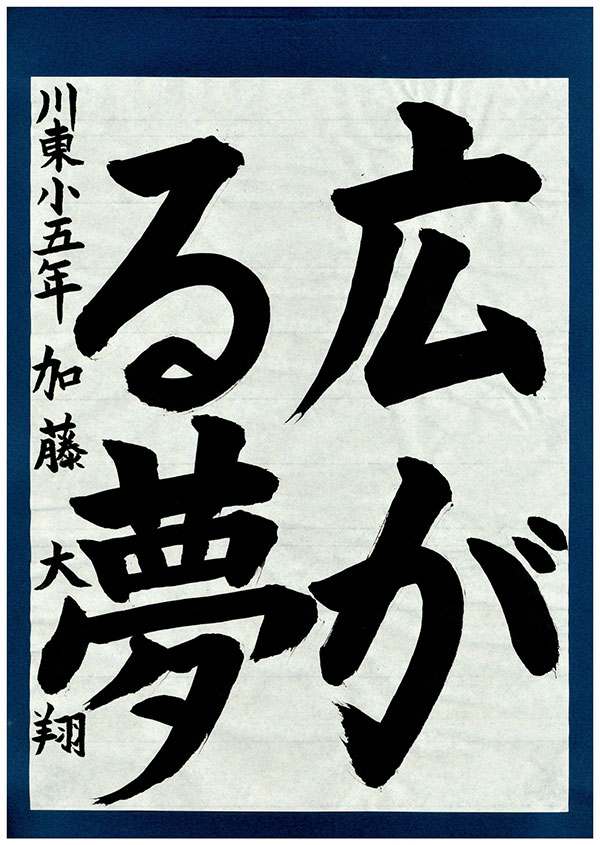 広が
る夢
川東小五年 加藤 大翔